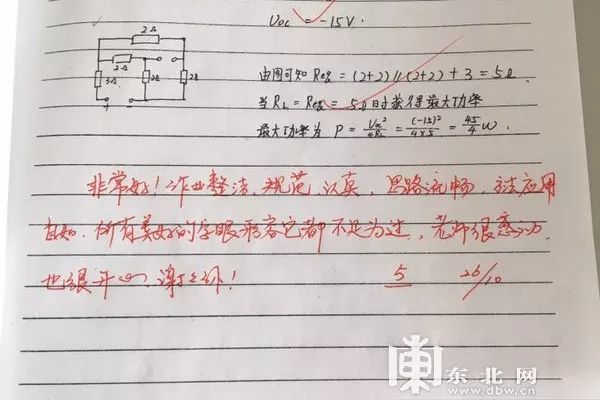 Uoc = -15V.
2Ω
2Ω
3Ω 2Ω 2Ω
由图可知 Req = (2+2)//(2+2) + 3 = 5Ω
当 RL = Req = 5Ω 时获得最大功率
最大功率为 P = Uoc²/4RL = (-15)²/4×5 = 45/4 W.
非常好！作业整洁、规范、认真，思路流畅，方法应用
自如，所有美好的字眼形容它都不足为过，老师很感动，
也很开心，谢谢
5 26/10
东北网
www.dbw.cn